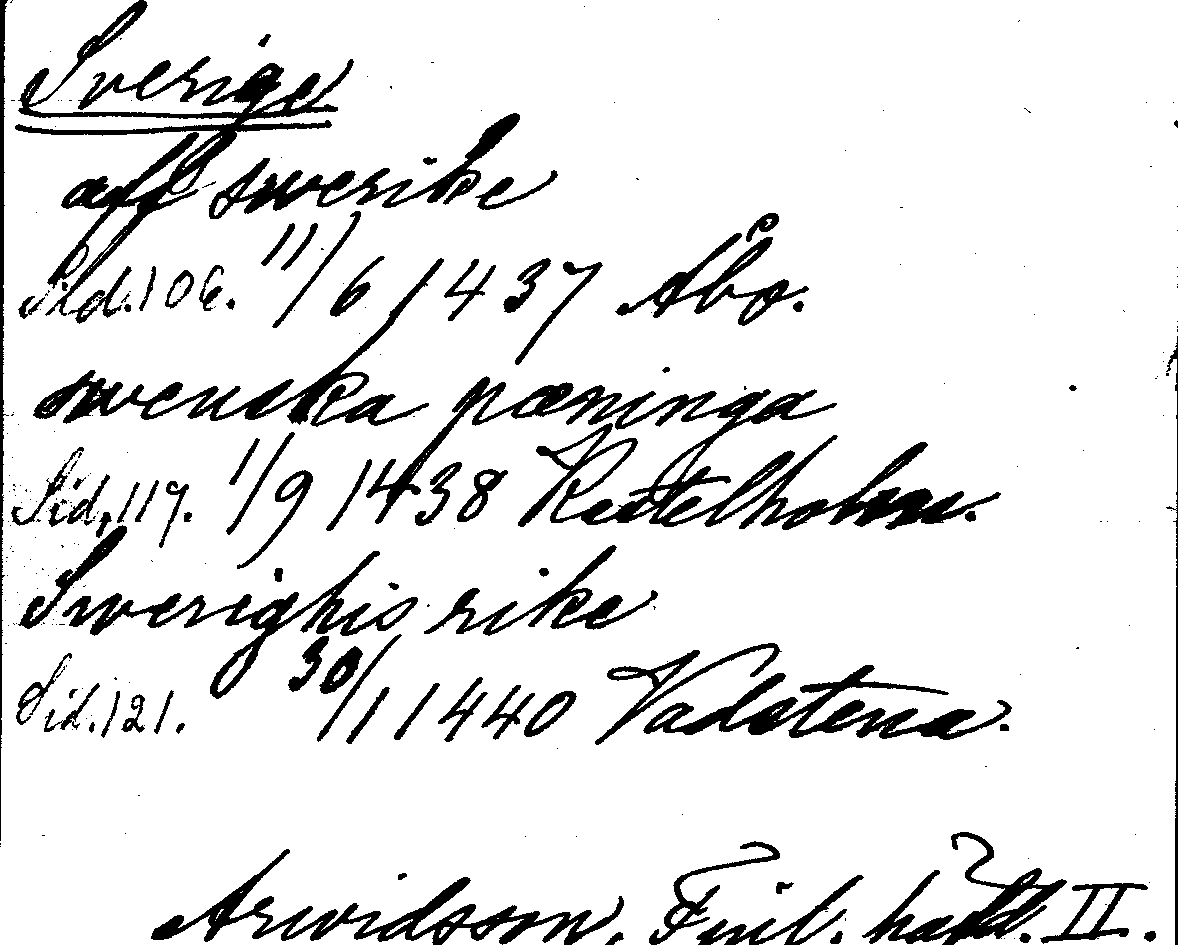 Sverige
aff swerike
Sid. 106. 11/6 1437 Åbo.
swenska pæninga
Sid. 117. 1/9 1438 Kastelholm.
Swerighis rike
Sid. 121. 30/1 1440 Vadstena.
Arwidsson, Finl. hafd. II.